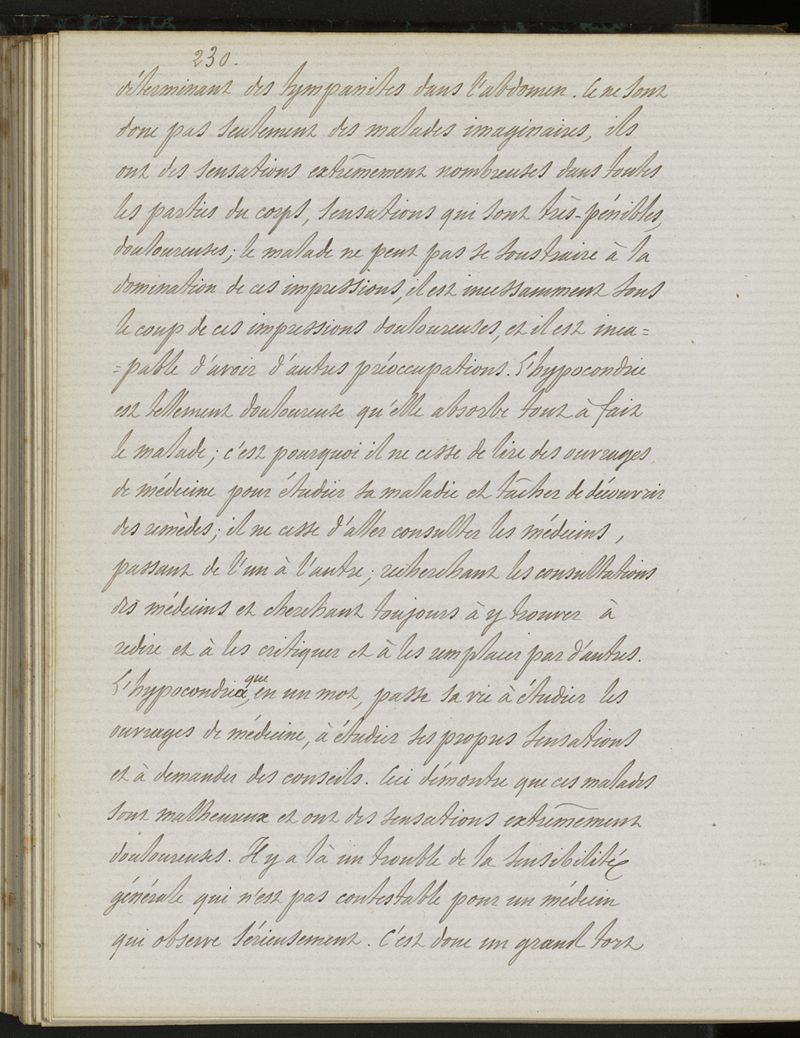 230.
déterminant des tympanites dans l'abdomen. Ce ne sont
donc pas seulement des malades imaginaires, ils
ont des sensations extrêmement nombreuses dans toutes
les parties du corps, sensations qui sont très-pénibles,
douloureuses; le malade ne peut pas se soustraire à la
domination de ces impressions, il est incessamment sous
le coup de ces impressions douloureuses, et il est inca=
=pable d'avoir d'autres préoccupations. L'hypocondrie
est tellement douloureuse qu'elle absorbe tout à fait
le malade; c'est pourquoi il ne cesse de lire des ouvrages
de médecine pour étudier sa maladie et tâcher de découvrir
des remèdes; il ne cesse d'aller consulter les médecins,
passant de l'un à l'autre; recherchant les consultations
des médecins et cherchant toujours à y trouver à
redire et à les critiquer et à les remplacer par d'autres.
L'hypocondriaque, en un mot, passe sa vie à étudier les
ouvrages de médecine, à étudier ses propres sensations
et à demander des conseils. Ceci démontre que ces malades
sont malheureux et ont des sensations extrêmement
douloureuses. Il y a là un trouble de la sensibilité
générale qui n'est pas contestable pour un médecin
qui observe sérieusement. C'est donc un grand tort